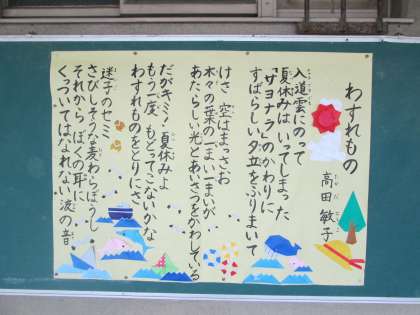 わすれもの
高田敏子
入道雲にのって
夏休みは いってしまった
「サヨナラ」のかわりに
すばらしい夕立をふりまいて
けさ 空はまっさお
木々の葉の一まい一まいが
あたらしい光とあいさつをかわしている
だがキミ！夏休みよ
もう一度 もどってこないかな
わすれものをとりにさ
迷子のセミ
さびしそうな麦わらぼうし
それから ぼくの耳に
くっついてはなれない波の音